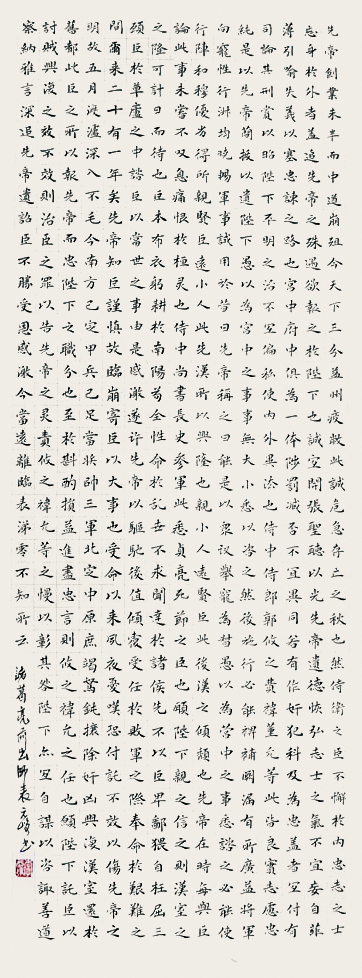 先帝創業未半而中道崩殂今天下三分益州疲敝此誠危急存亡之秋也然侍衛之臣不懈於內忠志之士
忘身於外者蓋追先帝之殊遇欲報之於陛下也誠宜開張聖聽以光先帝遺德恢弘志士之氣不宜妄自菲
薄引喻失義以塞忠諫之路也宮中府中俱為一体陟罰臧否不宜異同若有作奸犯科及為忠善者宜付有
司論其刑賞以昭陛下平明之治不宜偏私使內外異法也侍中侍郎郭攸之費禕董允等此皆良實志慮忠
純是以先帝簡拔以遺陛下愚以為宮中之事事無大小悉以咨之然後施行必能裨補闕漏有所廣益將軍
向寵性行淑均曉暢軍事試用於昔日先帝稱之曰能是以衆议舉寵為督愚以為營中之事悉諮之必能使
行陣和穆優劣得所親賢臣遠小人此先漢所以興隆也親小人遠賢臣此後漢之傾頹也先帝在時每與臣
論此事未嘗不歎息痛恨於桓靈也侍中尚書長史參軍此悉貞亮死節之臣也願陛下親之信之則漢室之
之隆可計日而待也臣本布衣躬耕於南陽苟全性命於亂世不求聞達於諸侯先不以臣卑鄙猥自枉屈三
顧臣於草廬之中諮臣以當世之事由是感激遂許先帝以驅馳後值傾覆受任於敗軍之際奉命於艱難之
間爾來二十有一年矣先帝知臣謹慎故臨崩寄臣以大事也受命以來夙夜憂嘆恐付託不效以傷先帝之
明故五月渡瀘深入不毛今南方已定甲兵已足當獎帥三軍北定中原庶竭駑鈍攘除奸凶興復漢室還於
舊都此臣之所以報先帝而忠陛下之職分也至於斟酌損益進盡忠言則攸之禕允之任也願陛下託臣以
討賊興復之效不效則治臣之罪以告先帝之靈責攸之禕允等之慢以彰其咎陛下亦宜自謀以咨諏善道
察納雅言深追先帝遺詔臣不勝受恩感激今當遠離臨表涕零不知所云 諸葛亮前出師表